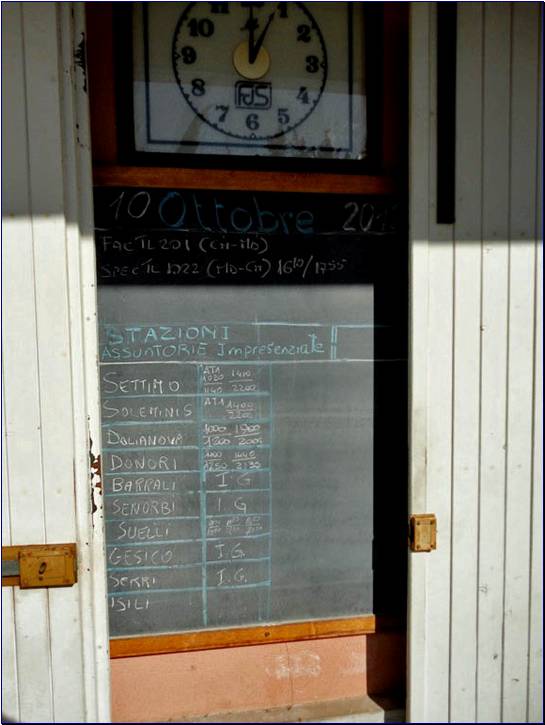 10 1
9 2
8 3
7 4
6 5
FdS
10 Ottobre 201
FAC TL 201 (
SPEC TL 1022 ( 16 / 1755
STAZIONI
ASSUNTORIE Impresenziate
SETTIMO ATA 1020 1410
1140 2200
SOLEMINIS ATA 1400
2200
DOLIANOVA 1000 1900
1200 2004
DONORI 1440
1250 2130
BARRALI I.G
SENORBI I.G
SUELLI
GESICO I.G.
SERRI I.G.
ISILI